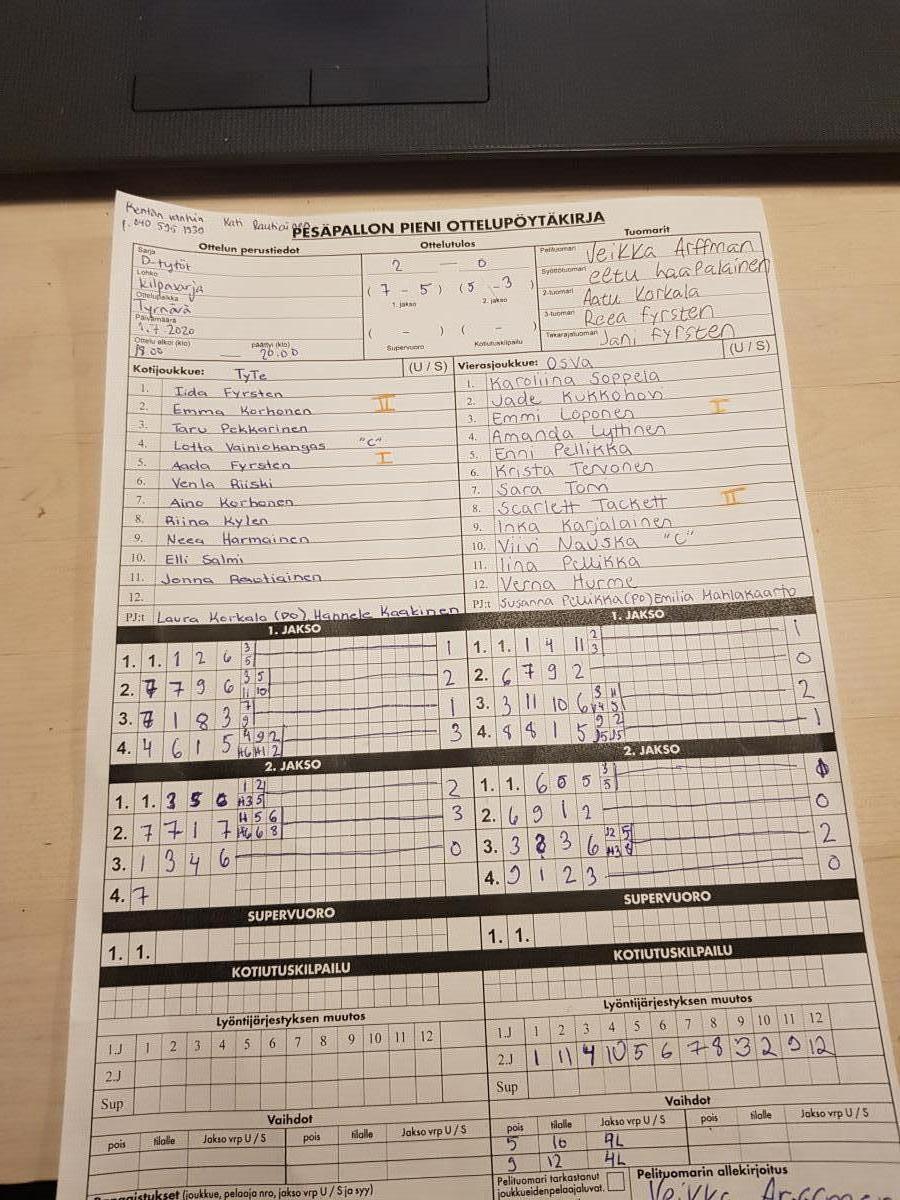 Kentän vanhin Kati Rautiainen
p. 040 595 1930
PESÄPALLON PIENI OTTELUPÖYTÄKIRJA
Ottelun perustiedot
Sarja
D-tytöt
Lohko
Kilpasarja
Ottelupaikka
Tyrnävä
Päivämäärä
1.7 2020
Ottelu alkoi (klo) päättyi (klo)
18.00 — 20.00
Ottelutulos
2 — 0
( 7 - 5 ) ( 5 - 3 )
1. jakso 2. jakso
( - ) ( - )
Supervuoro Kotiutuskilpailu
Tuomarit
Pelituomari Veikka Arffman
Syöttötuomari eetu haapalainen
2-tuomari Aatu Korkala
3-tuomari Reea Fyrsten
Takarajatuomari Jani Fyrsten
Kotijoukkue: TyTe (U / S)
1. Iida Fyrsten
2. Emma Korhonen II
3. Taru Pekkarinen
4. Lotta Vainiokangas "C"
5. Aada Fyrsten I
6. Venla Riiski
7. Aino Korhonen
8. Riina Kylen
9. Neea Harmainen
10. Elli Salmi
11. Jonna Rautiainen
12.
PJ:t Laura Korkala (PO) Hannele Kaakinen
Vierasjoukkue: OSVa (U / S)
1. Karoliina Soppela
2. Jade Kukkohovi
3. Emmi Loponen I
4. Amanda Lyttinen
5. Enni Pellikka
6. Krista Tervonen
7. Sara Torn
8. Scarlett Tackett II
9. Inka Karjalainen
10. Viivi Nauska "C"
11. Iina Pellikka
12. Verna Hurme
PJ:t Susanna Pellikka (PO) Emilia Mahlakaarto
1. JAKSO
1. 1. 1 2 6 3 5 1
2. 7 7 9 6 3 5 11 10 2
3. 7 1 8 3 7 9 1
4. 4 6 1 5 4 9 2 H6 H1 2 3
2. JAKSO
1. 1. 3 5 6 1 2 H3 5 2
2. 7 7 1 7 H 5 6 H6 6 8 3
3. 1 3 4 6 0
4. 7
SUPERVUORO
1. 1.
KOTIUTUSKILPAILU
Lyöntijärjestyksen muutos
1.J 1 2 3 4 5 6 7 8 9 10 11 12
2.J
Sup
Vaihdot
pois tilalle Jakso vrp U / S pois tilalle Jakso vrp U / S
1. JAKSO
1. 1. 1 4 11 2 3 1
2. 6 7 9 2 0
3. 3 11 10 6 2
4. 8 8 1 5 9 2 J5 J5 1
2. JAKSO
1. 1. 6 6 5 3 5
2. 6 9 1 2 0
3. 3 8 3 6 2
4. 9 1 2 3 0
SUPERVUORO
1. 1.
KOTIUTUSKILPAILU
Lyöntijärjestyksen muutos
1.J 1 2 3 4 5 6 7 8 9 10 11 12
2.J 1 11 4 10 5 6 7 8 3 2 9 12
Sup
Vaihdot
pois tilalle Jakso vrp U / S pois tilalle Jakso vrp U / S
5 10 4L
9 12 4L
(joukkue, pelaaja nro, jakso vrp U / S ja syy)
Pelituomari tarkastanut
joukkueidenpelaajaluvat.
Pelituomarin allekirjoitus
Veikka Arffman